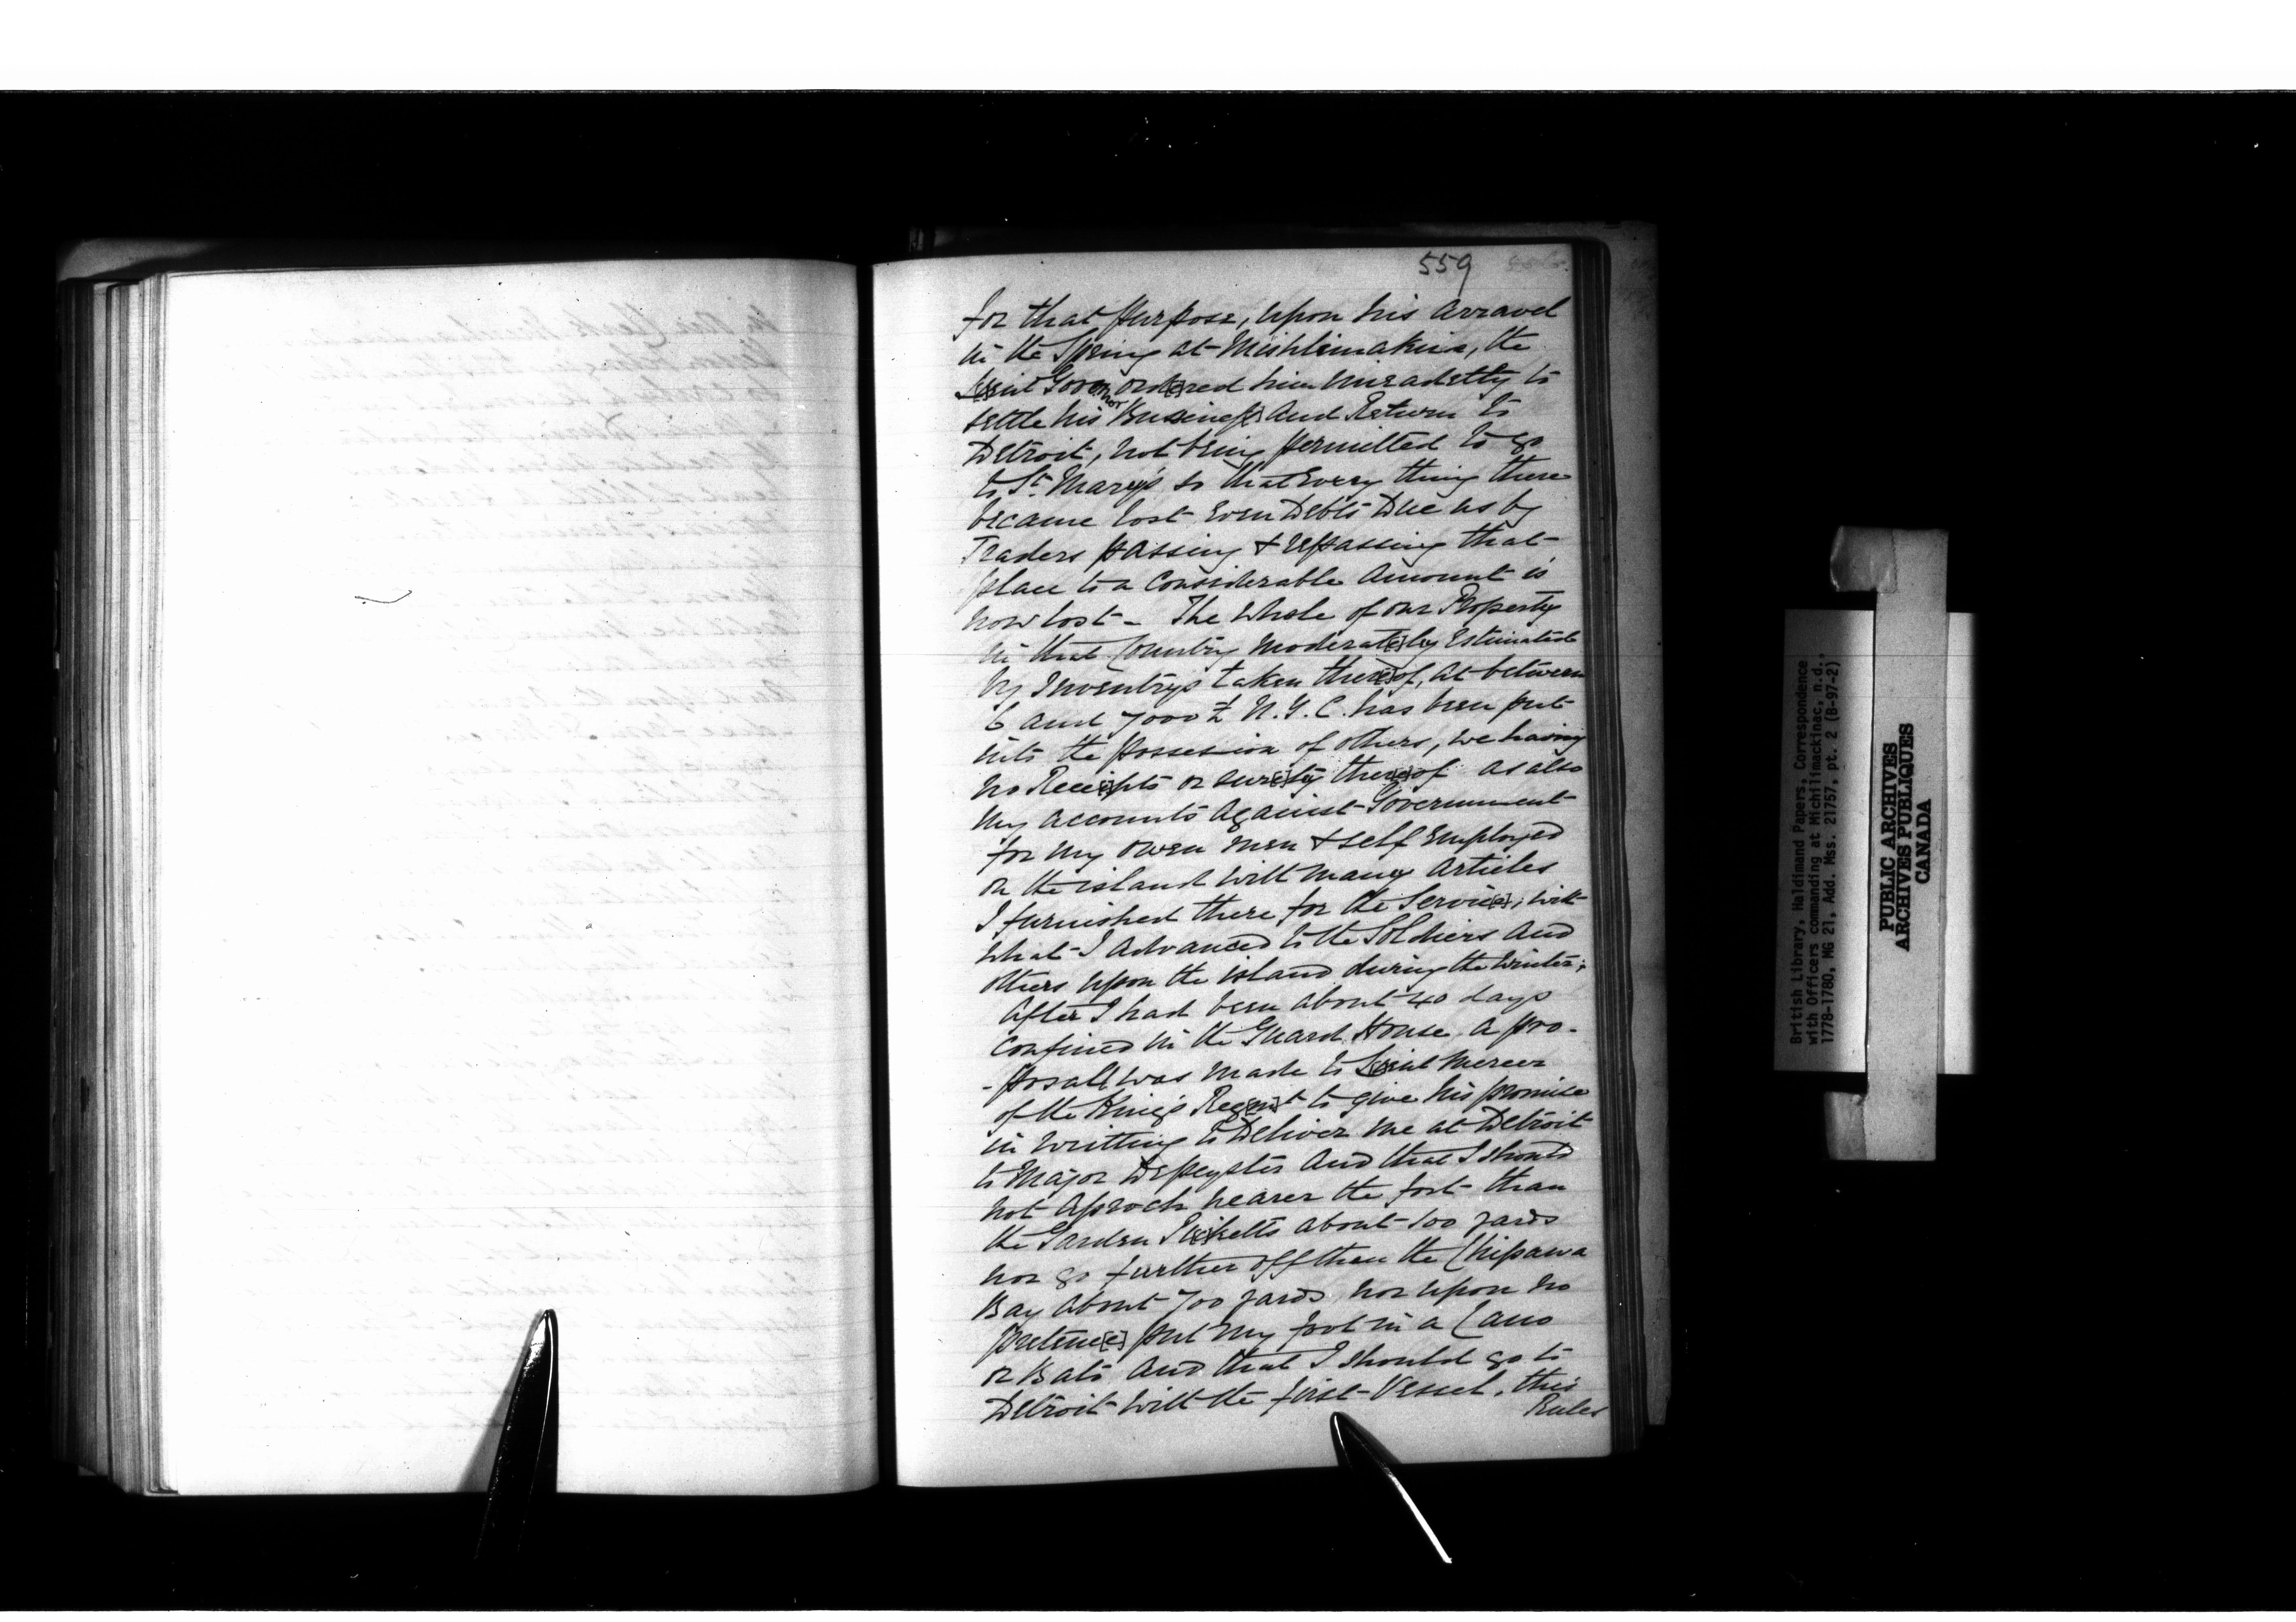 559
for that purpose, upon his arravel
in the Spring at Mishlimakina, the
Lieut Governor ordered him imeadetly to
settle his Business and Return to
Detroit, not being permitted to go
to St. Mary's so that Every thing there
became lost Even Debts Due us by
Traders passing & repassing that
place to a Considerable Amount is
now lost - The whole of our Property
in that Country moderat[e]ly Estimated
by Inventrys taken ther[e]of, at between
6 and 7000 £ N.Y.C. has been put
into the possession of others, we having
no Rece[i]pts or sur[e]ty ther[e]of as also
my accounts against Government
for my owen men & self Employed
on the island with many Articles
I furnished there for the Servic[e], with
what I Advanced to the Soldiers and
others upon the island during the Winter;
After I had been about 40 days
Confined in the Guard House a pro-
-posall was made to L[i]eut Mercer
of the King's Reg[m]t to give his promise
in writting to Deliver me at Detroit
to Major Depeyster And that I should
not Aproch nearer the fort than
the Garden Pi[c]ketts about 100 yards
nor go further off than the Chipawa
Bay about 700 yards nor upon no
pretenc[e] put my foot in a Cano
or Bato and that I should go to
Detroit with the first Vessel, this
Rules
British Library, Haldimand Papers, Correspondence
with Officers commanding at Michilimackinac, n.d.,
1778-1780, MG 21, Add. Mss. 21757, pt. 2 (B-97-2)
PUBLIC ARCHIVES
ARCHIVES PUBLIQUES
CANADA